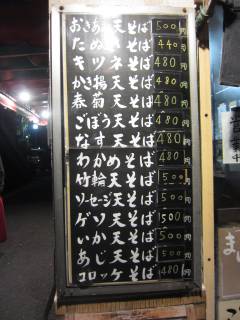 おきあみ天そば 500円
たぬきそば 440円
キツネそば 480円
かき揚天そば 480円
春菊天そば 480円
ごぼう天そば 480円
なす天そば 480円
わかめそば 480円
竹輪天そば 500円
ソーセージ天そば 500円
ゲソ天そば 500円
いか天そば 500円
あじ天そば 500円
コロッケそば 480円